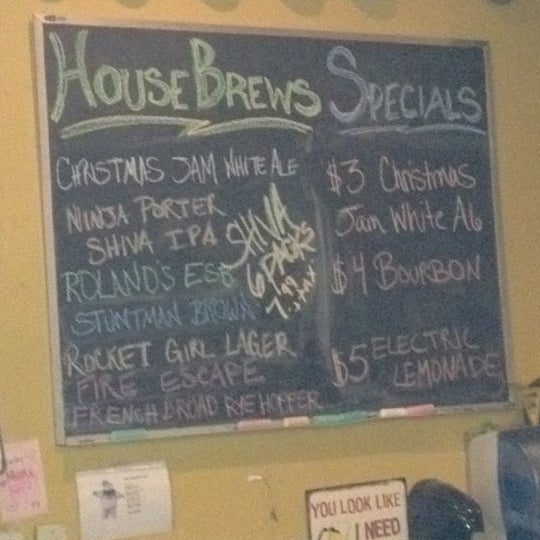 HOUSE BREWS
CHRISTMAS JAM WHITE ALE
NINJA PORTER
SHIVA IPA
ROLAND'S ESB
STUNTMAN BROWN
ROCKET GIRL LAGER
FIRE ESCAPE
FRENCH BROAD RYE HOPPER
SHIVA
6 PACKS
7.99
+ tax
SPECIALS
$3 Christmas
Jam White Ale
$4 BOURBON
$5 ELECTRIC
LEMONADE
YOU LOOK LIKE
I NEED